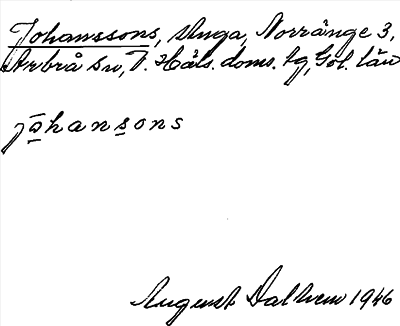 Johanssons, Unga, Norränge 3,
Arbrå sn, V. Häls. doms. tg, Gvl. län
johansons
August Dalhem 1946